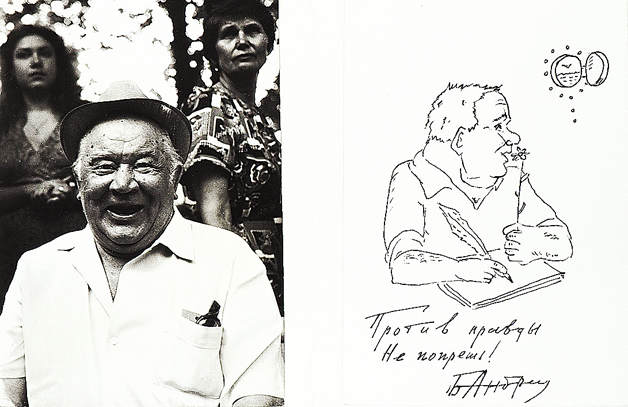 Против правды
Не попрешь!